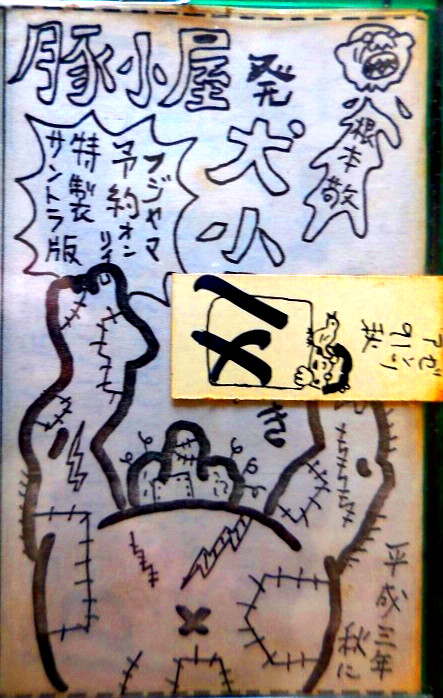 豚小屋
発
犬小
根本敬
フジヤマ
予約オンリイ
特製
サントラ版
〆
アゼツリ
91秋
き
平成三年
秋に